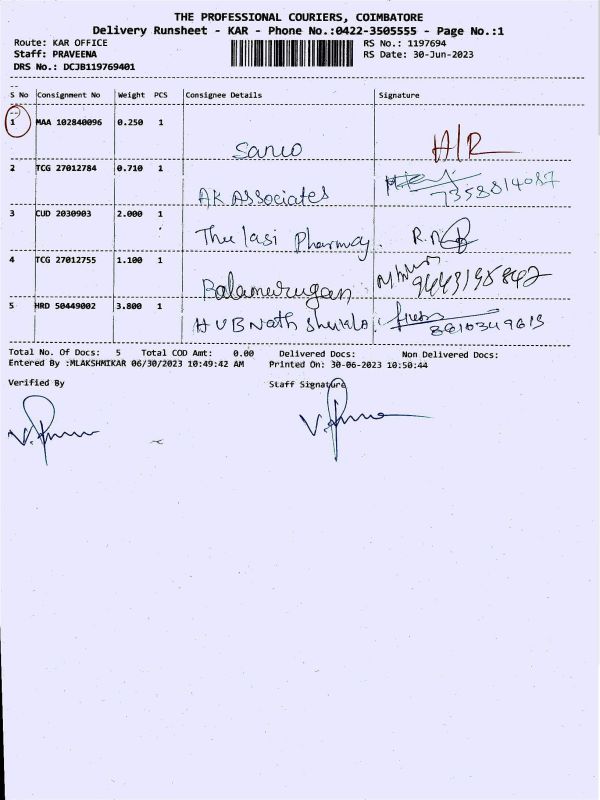 THE PROFESSIONAL COURIERS, COIMBATORE
Delivery Runsheet - KAR - Phone No.:0422-3505555 - Page No.:1
Route: KAR OFFICE RS No.: 1197694
Staff: PRAVEENA RS Date: 30-Jun-2023
DRS No.: DCJB119769401
S No Consignment No Weight PCS Consignee Details Signature
1 MAA 102840096 0.250 1
H/R
2 TCG 27012784 0.710 1
AK Associates 7358814087
3 CUD 2030903 2.000 1
Thulasi Pharmacy.
4 TCG 27012755 1.100 1
Balamurugan
5 HRD 50449002 3.800 1
Total No. Of Docs: 5 Total COD Amt: 0.00 Delivered Docs: Non Delivered Docs:
Entered By :MLAKSHMIKAR 06/30/2023 10:49:42 AM Printed On: 30-06-2023 10:50:44
Verified By Staff Signature